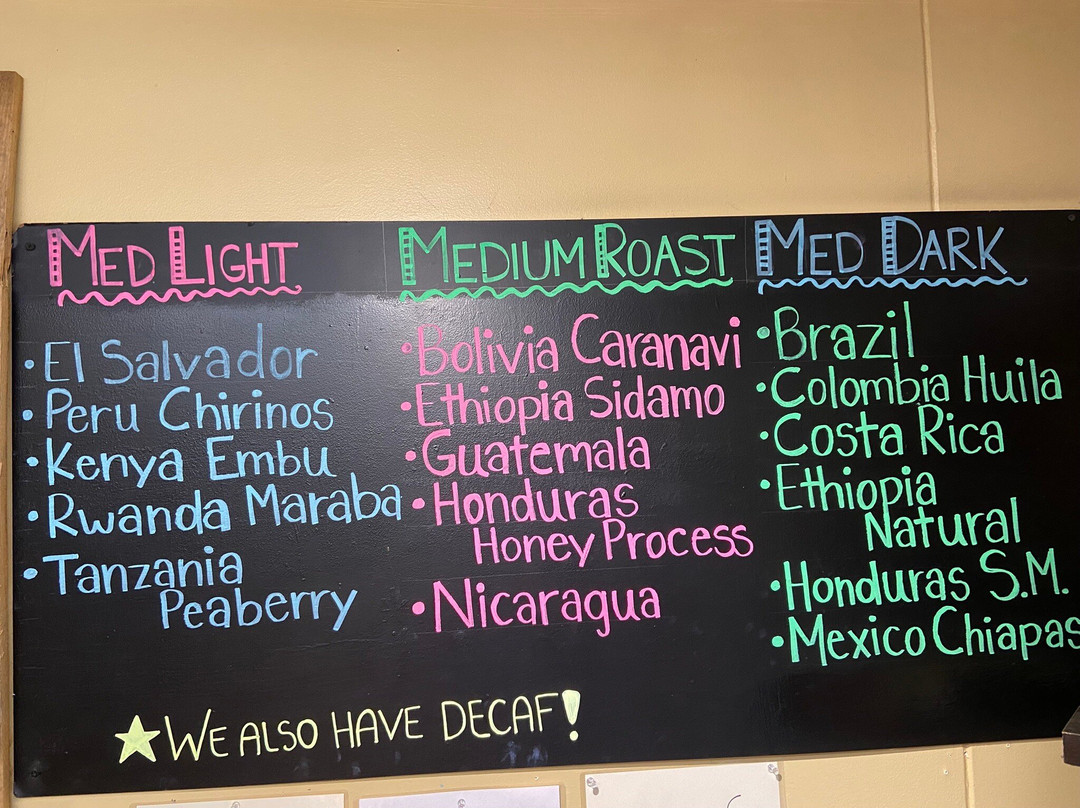 MED LIGHT
• El Salvador
• Peru Chirinos
• Kenya Embu
• Rwanda Maraba
• Tanzania
Peaberry
MEDIUM ROAST
• Bolivia Caranavi
• Ethiopia Sidamo
• Guatemala
• Honduras
Honey Process
• Nicaragua
MED DARK
• Brazil
• Colombia Huila
• Costa Rica
• Ethiopia
Natural
• Honduras S.M.
• Mexico Chiapas
★ WE ALSO HAVE DECAF!